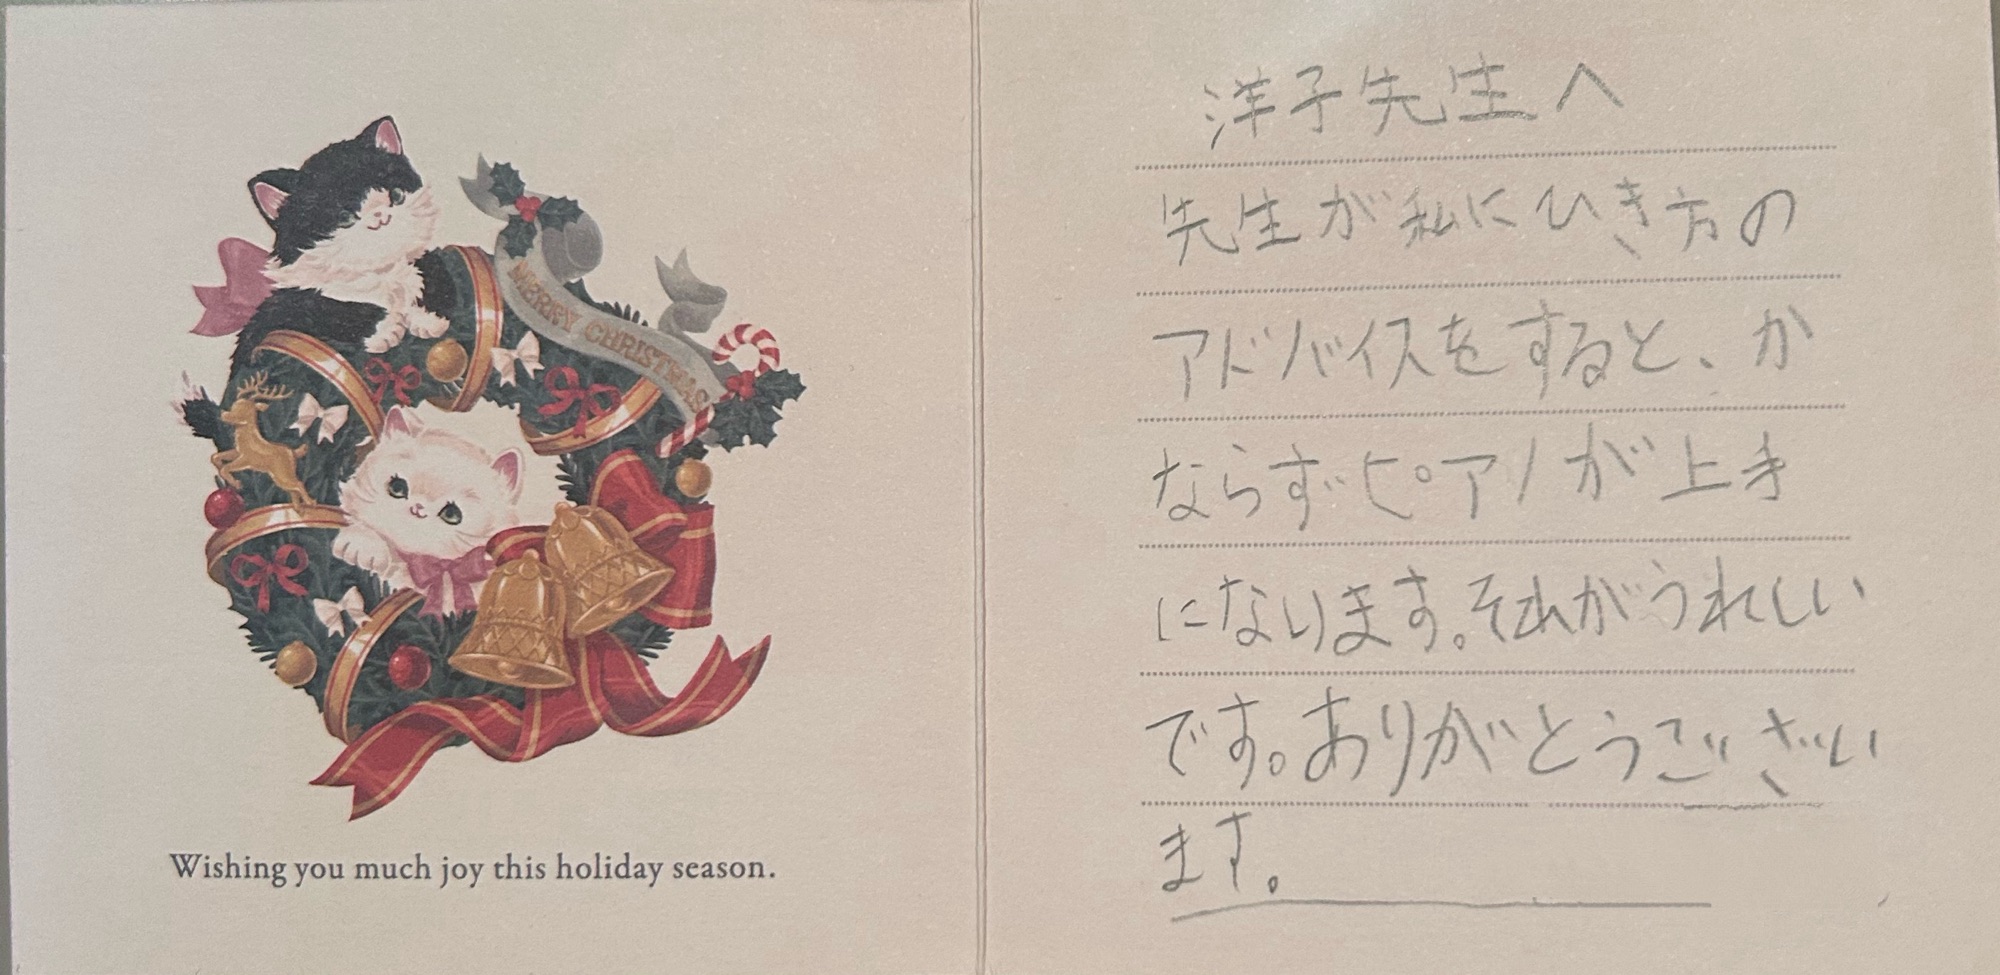 MERRY CHRISTMAS
Wishing you much joy this holiday season.
洋子先生へ
先生が私にひき方の
アドバイスをすると、か
ならずピアノが上手
になります。それがうれしい
です。ありがとうござい
ます。